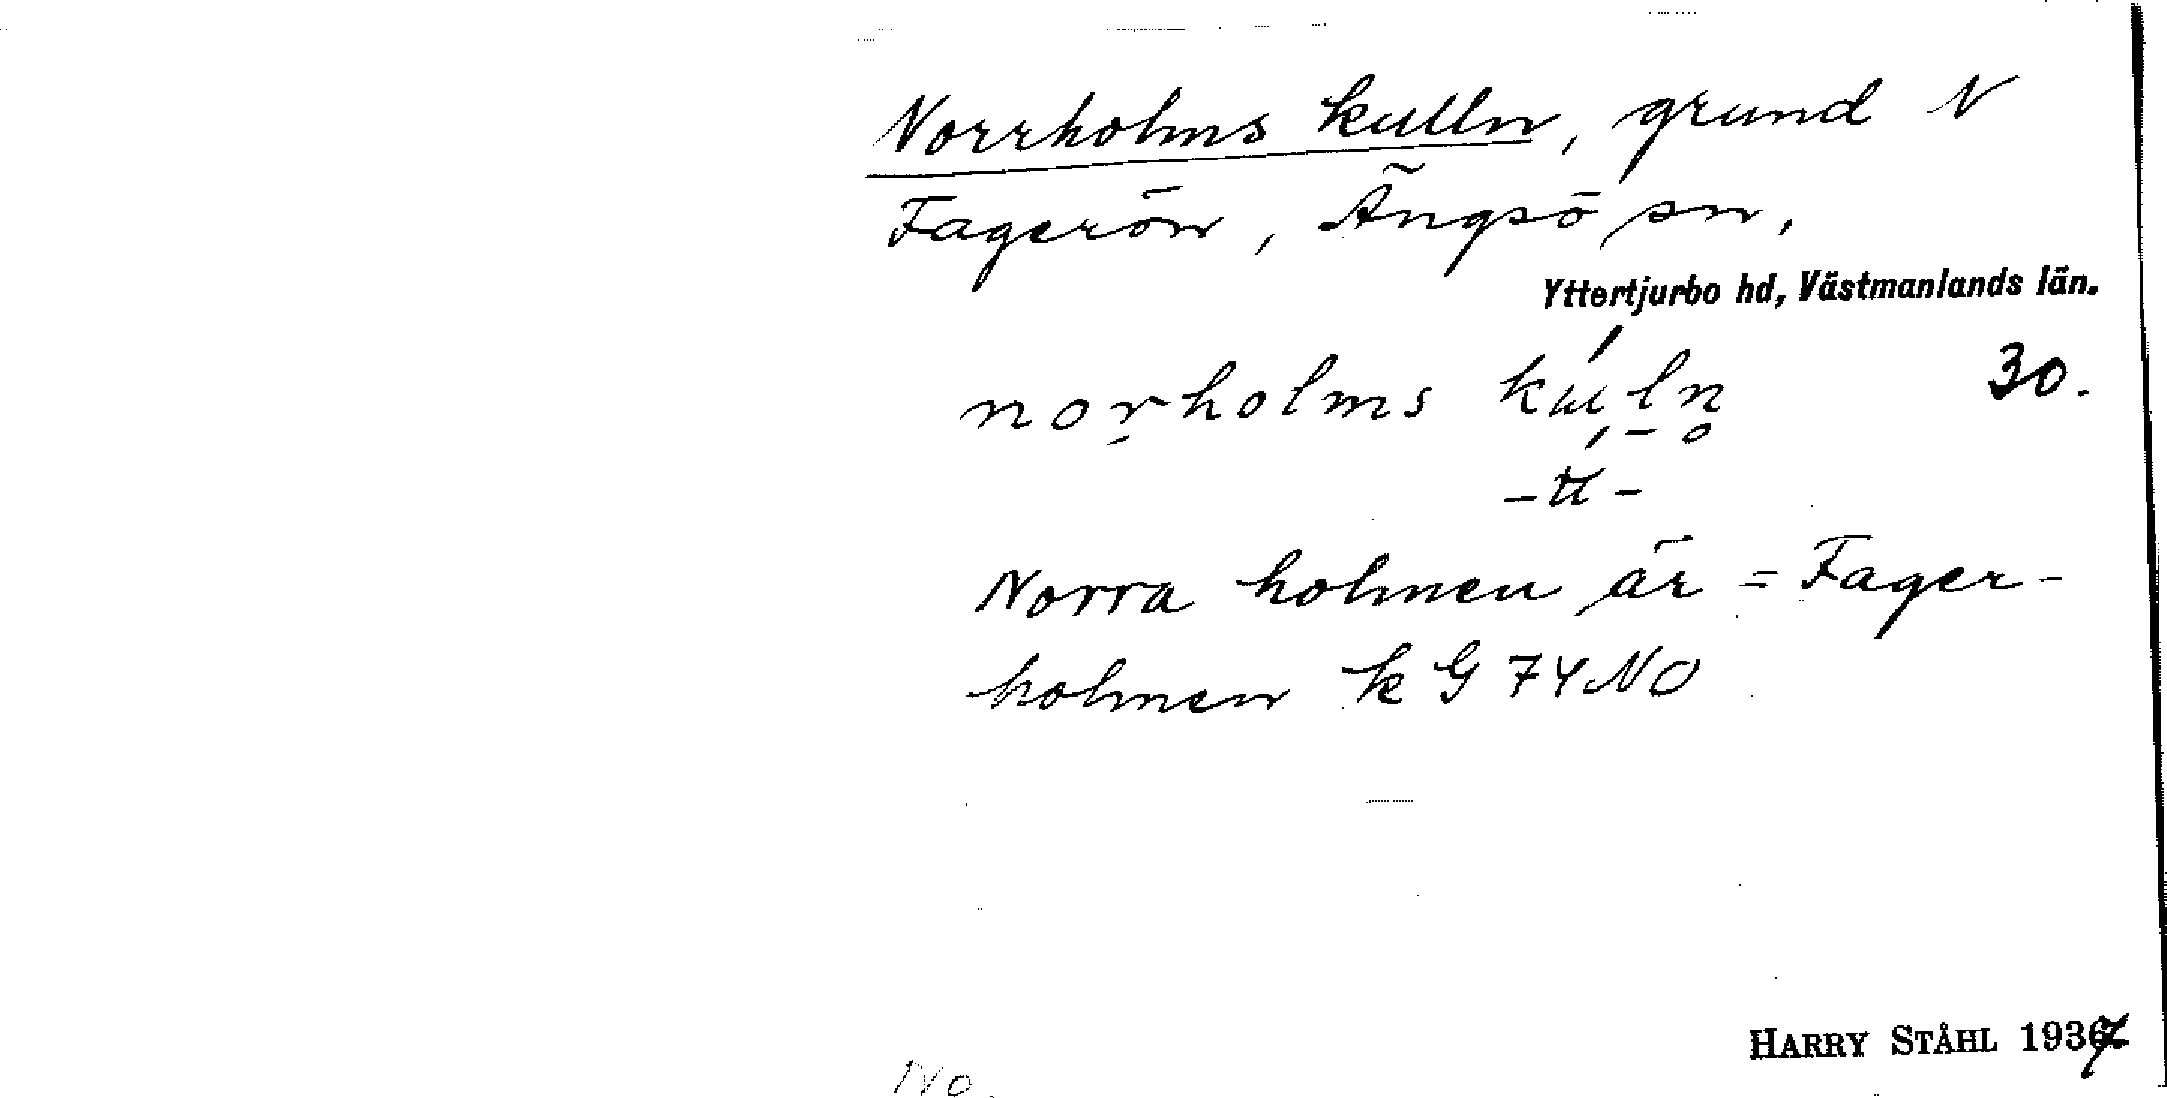 Norrholms kulln, grund N
Fagerön, Ängsö sn,
Yttertjurbo hd, Västmanlands län.
norholms kuln 30.
-u-
Norra holmen är = Fager-
holmen k G 74 NO
HARRY STÅHL 1937
No.